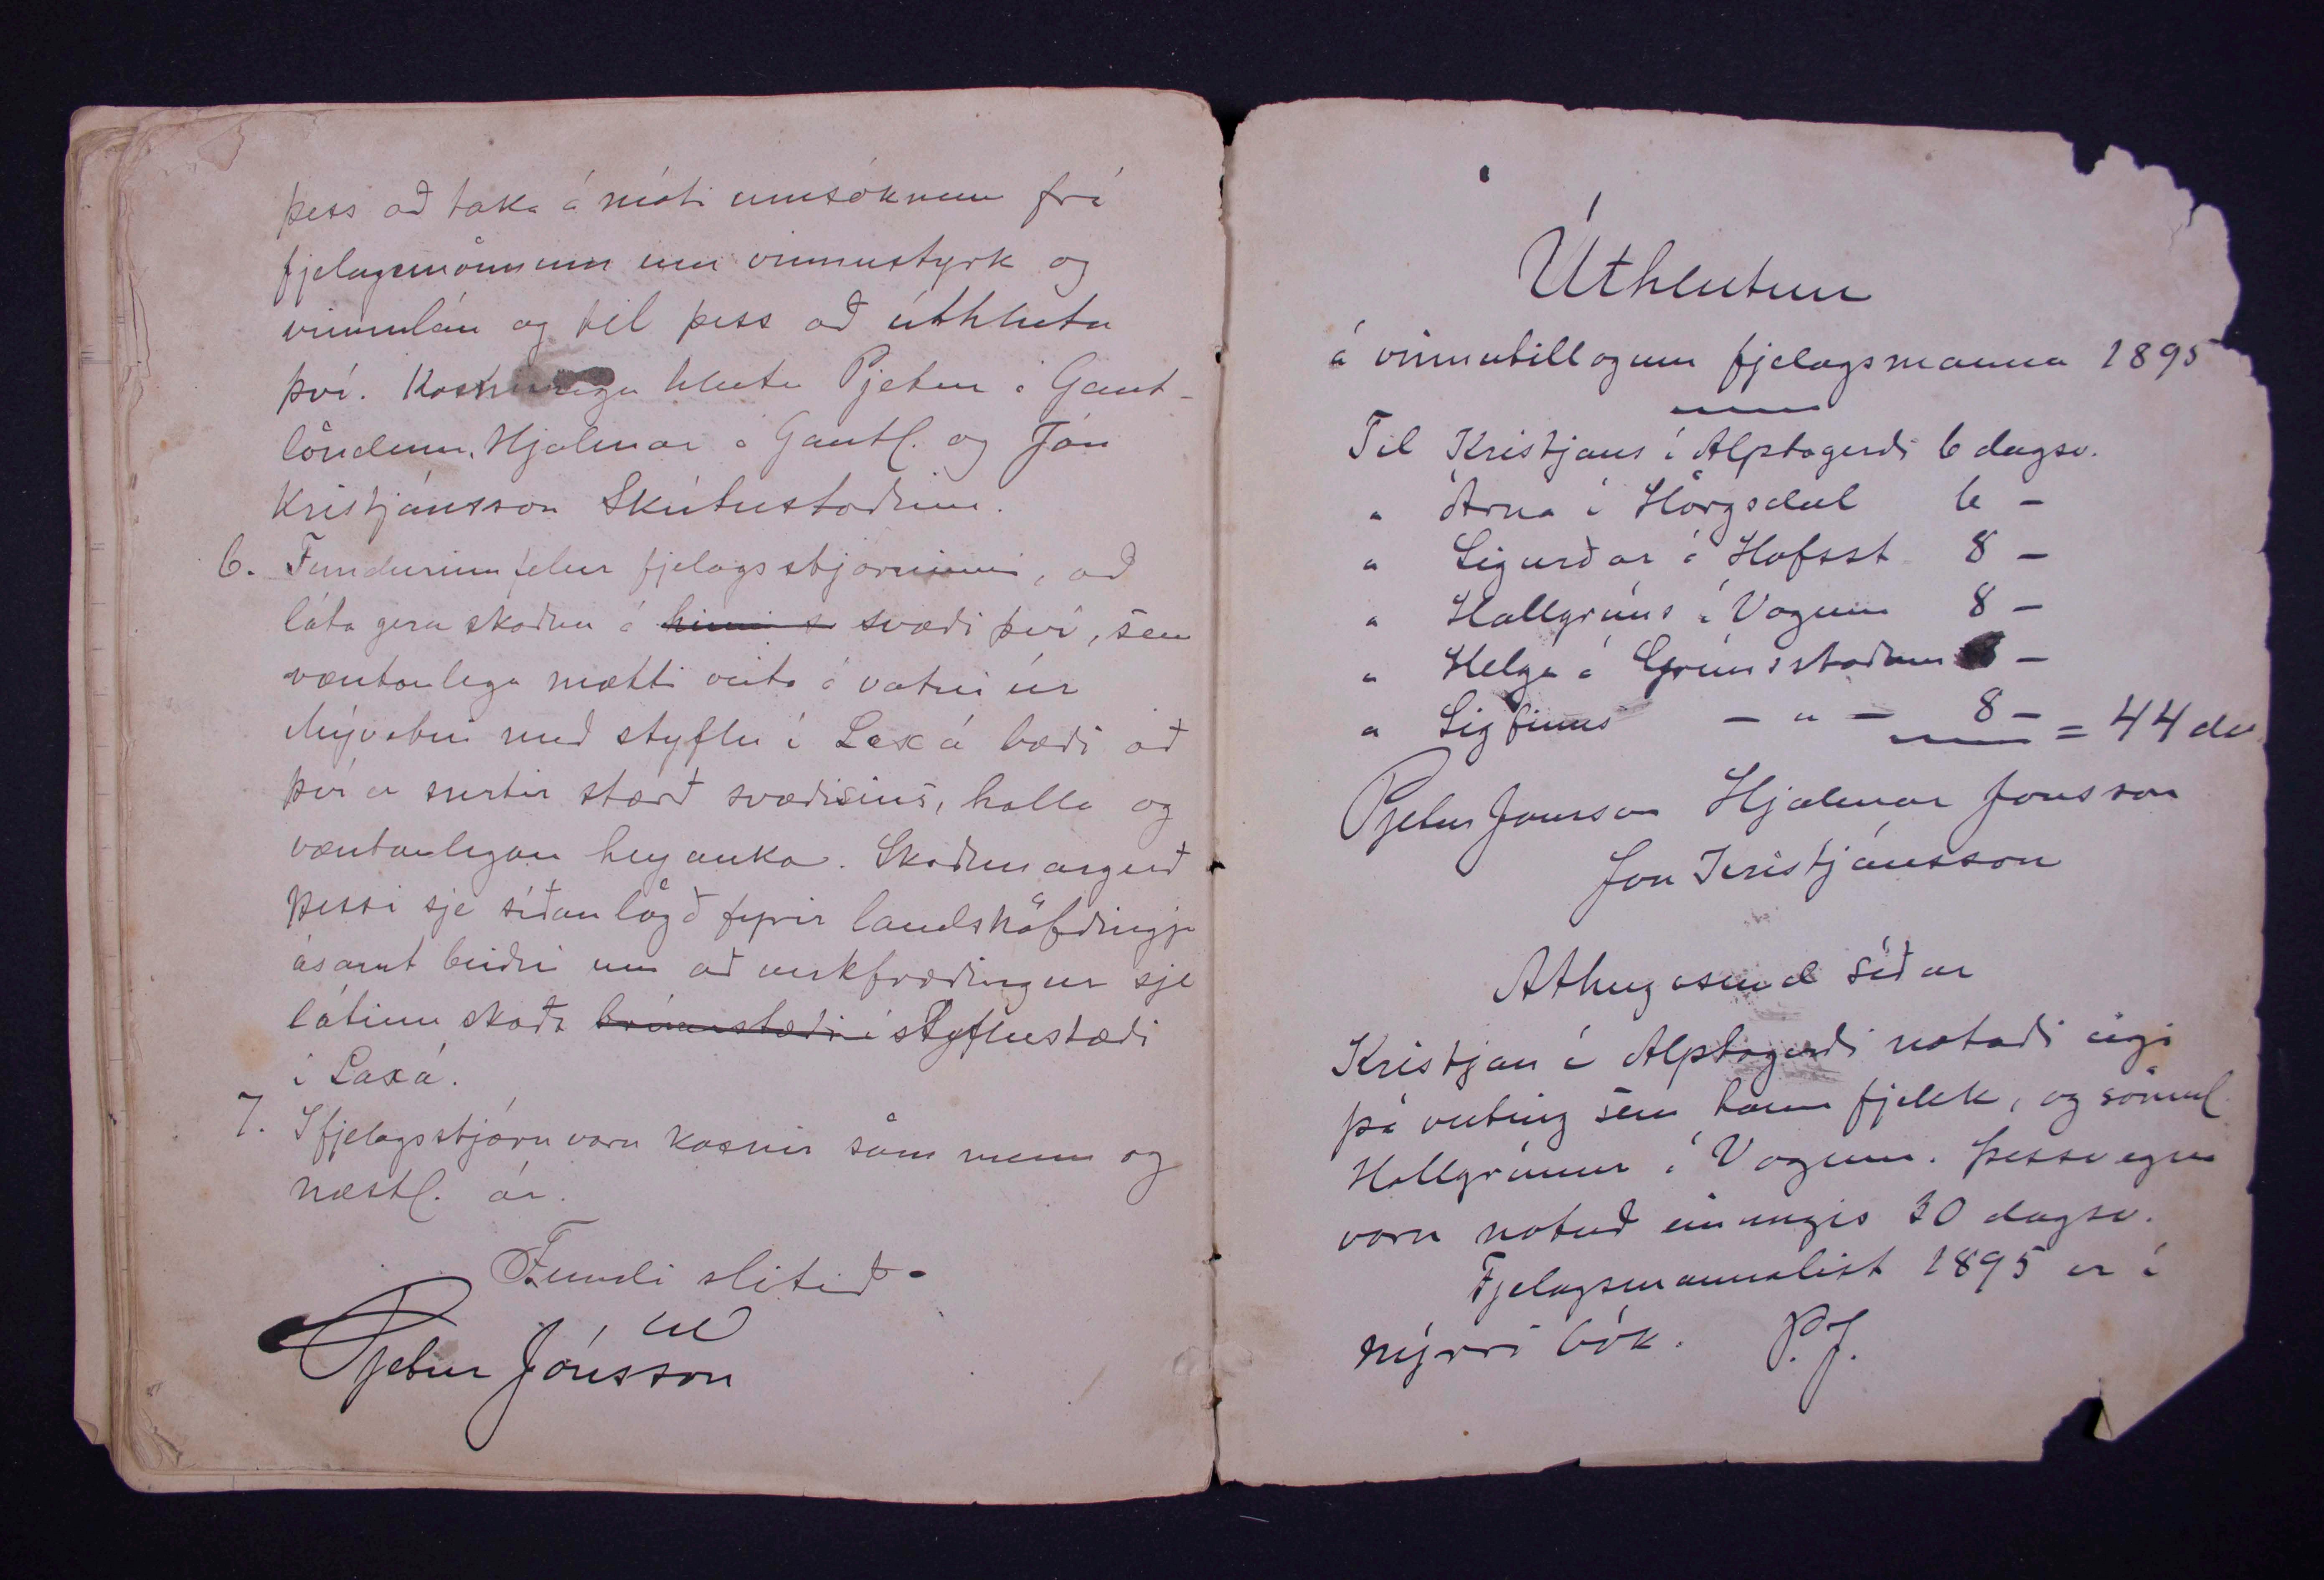 þess að taka á móti umsóknum frá
fjelagsmönnum um vinnustyrk og
vinnulán og til þess að úthluta
því. Kosningu hlutu Pjetur á Gaut-
löndum, Hjálmar á Gautl. og Jón
Kristjánsson Skútustöðum.
6. Fundurinn felur fjelagsstjórninni, að
láta gera skoðun á hinu s svæði því, sem
væntanlega mætti veita á vatni úr
Mývatni með styflu í Laxá bæði að
því er snertir stærð svæðisins, halla og
væntanlegan heyauka. Skoðunargerð
þessi sje síðan lögð fyrir landshöfðingja
ásamt beiðni um að verkfræðingur sje
látinn skoða brúarstæði í styflustæði
í Laxá.
7. Í fjelagsstjórn voru kosnir sömu menn og
næstl. ár.
Fundi slitið.
Pjetur Jónsson
Úthlutun
á vinnutillögum fjelagsmanna 1895
Til Kristjáns í Alptagerði 6 dagsv.
" Árna í Hörgsdal 6 -
" Sigurðar á Hofsst. 8 -
" Hallgríms í Vogum 8 -
" Helga á Grímsstöðum 8 -
" Sigfinns - " - 8 - = 44 dv
Pjetur Jónsson Hjálmar Jónsson
Jón Kristjánsson
Athugasemd síðar
Kristján í Alptagerði notaði eigi
þá veiting sem hann fjekk, og sömul.
Hallgrímur í Vogum. Þessvegna
voru notuð einungis 30 dagsv.
Fjelagsmannalist 1895 er í
nýrri bók. P.J.